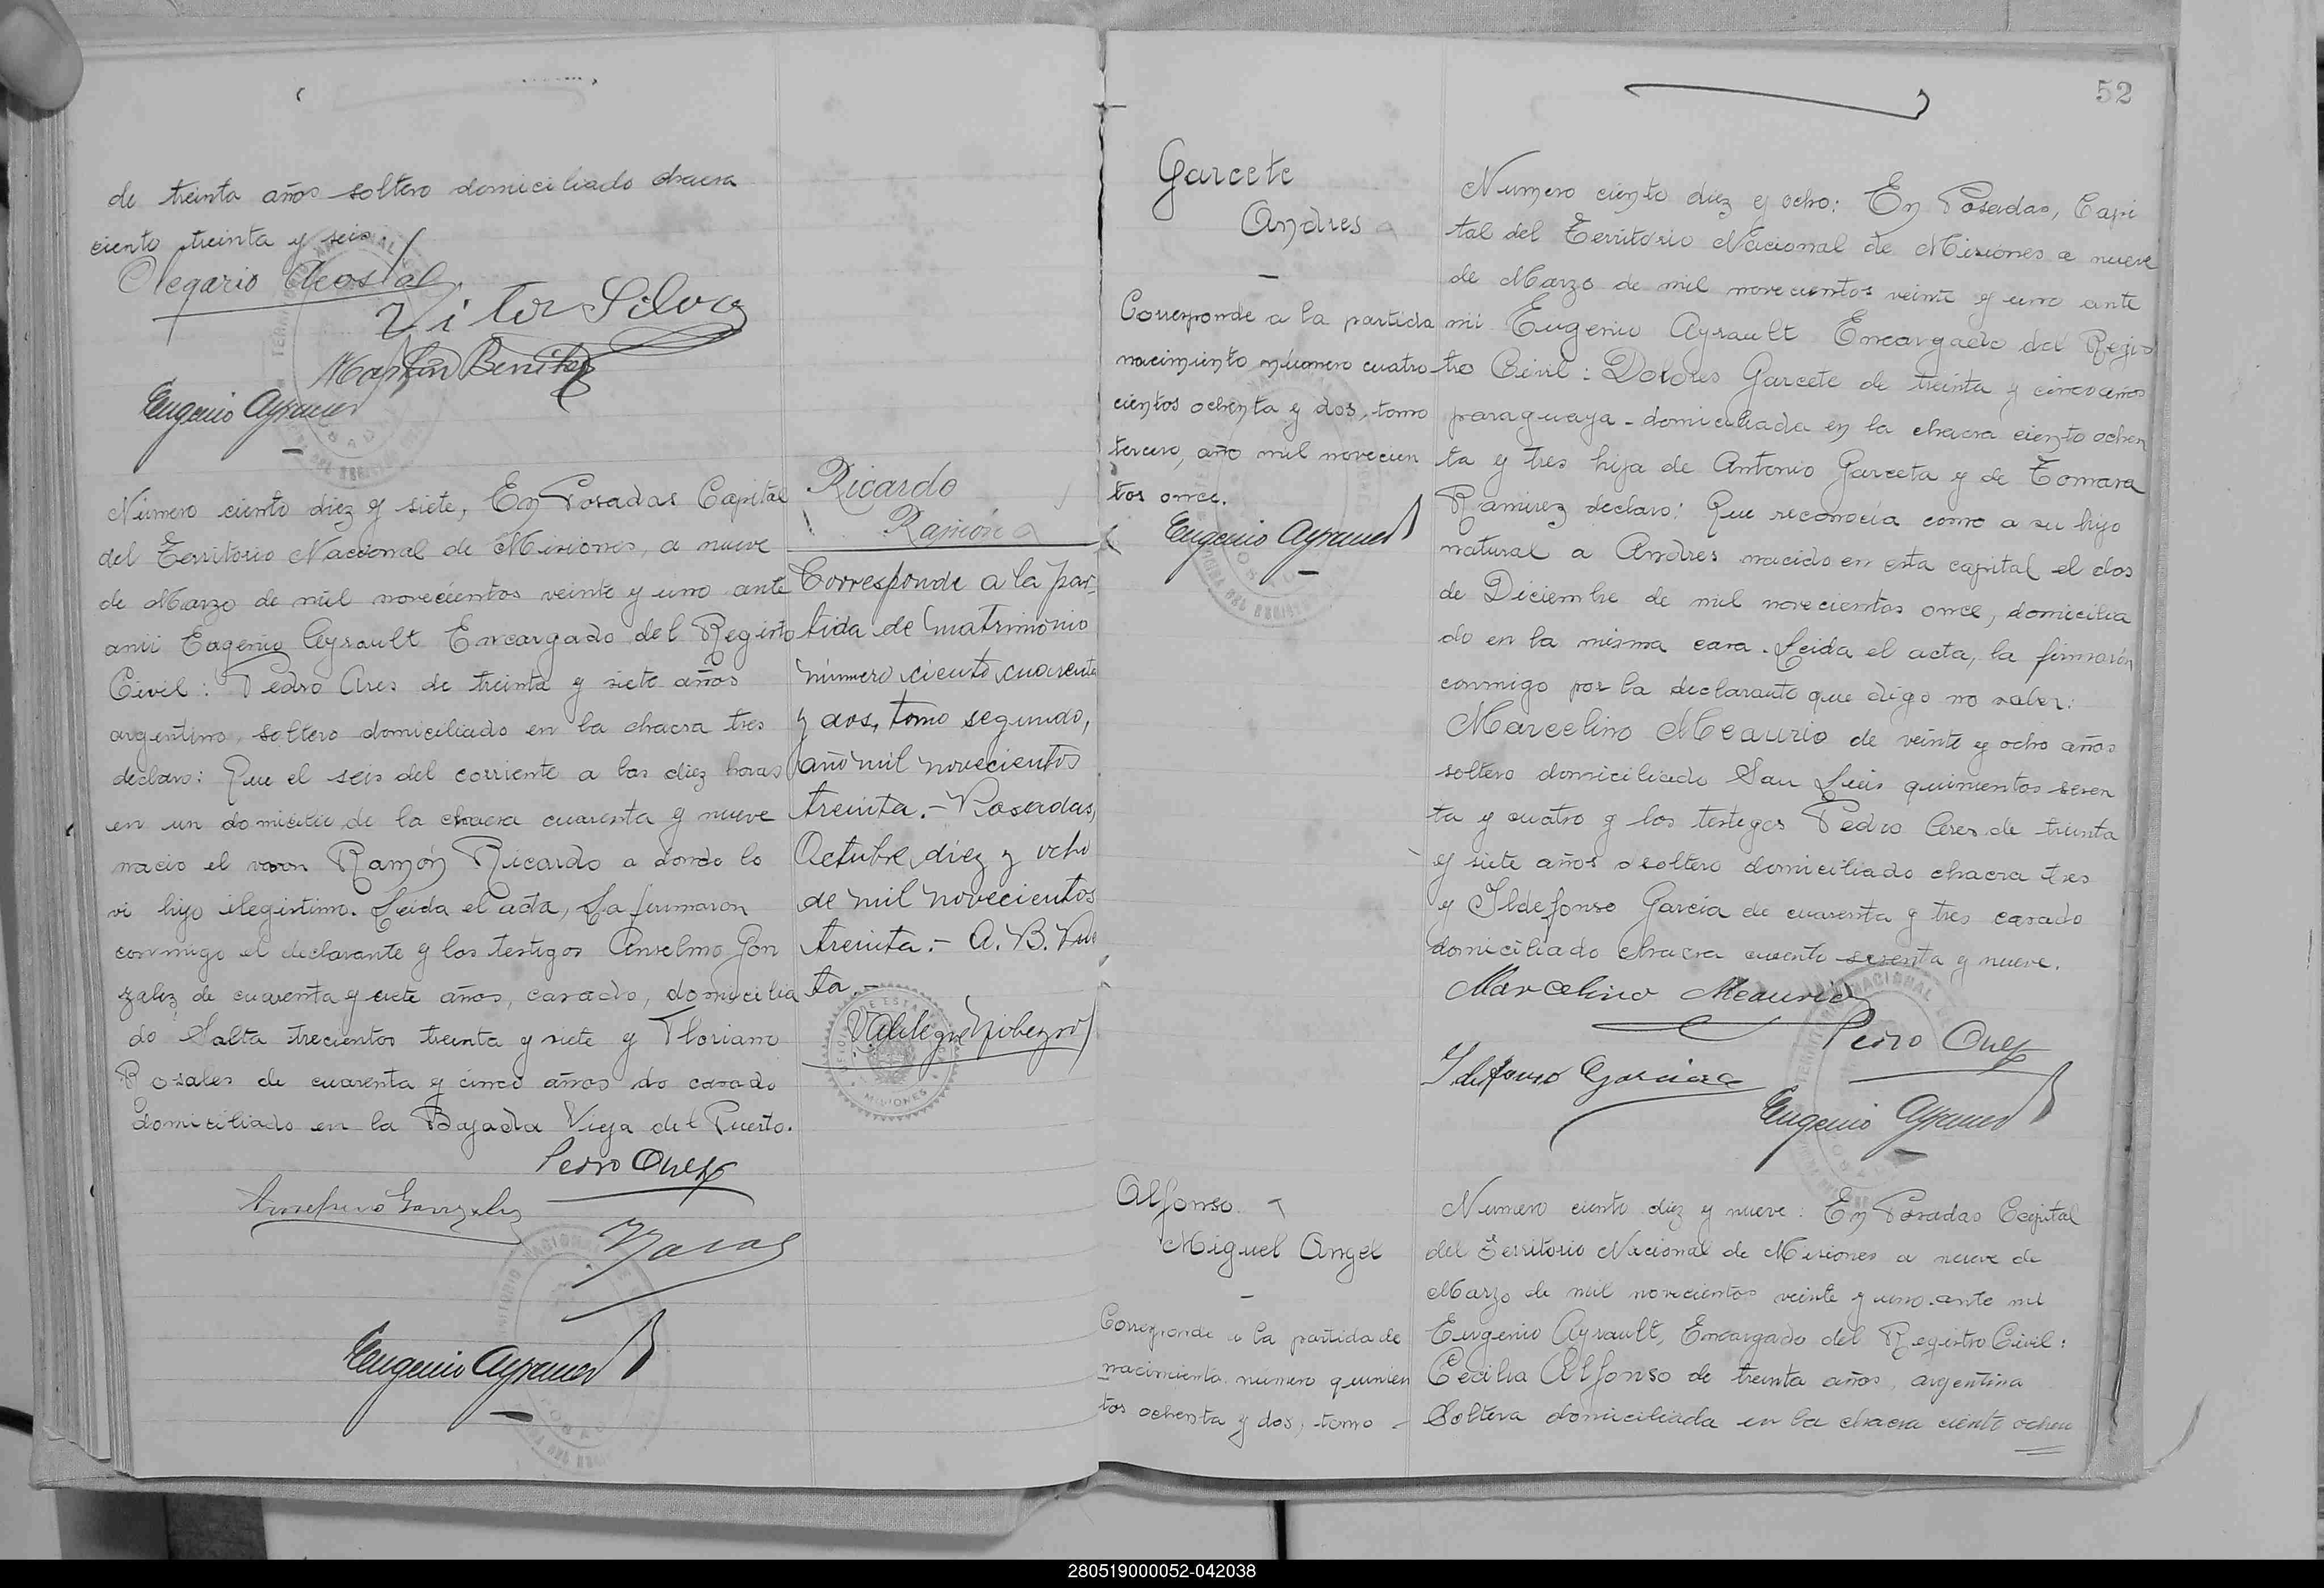 de treinta años soltero domiciliado chacra
ciento treinta y seis.
Olegario Acosta
Vitor Silva
Martin Benitez
Eugenio Ayrault
Número ciento diez y siete, En Posadas Capital
del Territorio Nacional de Misiones, a nueve
de Marzo de mil novecientos veinte y uno ante
mi Eugenio Ayrault Encargado del Registo
Civil: Pedro Ares de treinta y siete años
argentino, soltero domiciliado en la chacra tres
declaro: Que el seis del corriente a las diez horas
en un domicilio de la chacra cuarenta y nueve
nacio el varon Ramón Ricardo a donde lo
vi hijo ilegistimo. Leida el acta, La firmaron
conmigo el declarante y los testigos Anselmo Gon
zalez de cuarenta y siete años, casado, domicilia
do Salta trecientos treinta y siete y Floriano
Rosales de cuarenta y cinco años do casado
domiciliado en la Bajada Vieja del Puerto.
Pedro
Anselmo Gonzalez
Eugenio Ayrault
Ricardo
Ramón
Corresponde a la par-
tida de matrimonio
número ciento cuarenta
y dos, tomo segundo,
año mil novecientos
treinta.- Posadas,
Octubre diez y ocho
de mil novecientos
treinta.- A. B.
ta.-
MISIONES
52
Garcete
Andres
Corresponde a la partida
nacimiento número cuatro
cientos ochenta y dos, tomo
tercero, año mil novecien
tos once.
Eugenio Ayrault
Numero ciento diez y ocho: En Posadas, Capi
tal del Territorio Nacional de Misiones a nueve
de Marzo de mil novecientos veinte y uno ante
mi Eugenio Ayrault Encargado del Regis
tro Civil: Dolores Garcete de treinta y cinco años
paraguaya - domiciliada en la chacra ciento ochen
ta y tres hija de Antonio Garceta y de Tomasa
Ramirez declaro: Que reconocia como a su hijo
natural a Andres nacido en esta capital el dos
de Diciembre de mil novecientos once, domicilia
do en la misma casa. Leida el acta, la firmarón
conmigo por la declarante que digo no saber:
Marcelino Meaurio de veinte y ocho años
soltero domiciliado San Luis quinientos seten
ta y cuatro y los testigos Pedro Ares de treinta
y siete años soltero domiciliado chacra tres
y Ildefonso Garcia de cuarenta y tres casado
domiciliado chacra ciento sesenta y nueve.
Marcelino Meaurio
Pedro
Ildefonso Garcia
Eugenio Ayrault
Alfonso
Miguel Angel
Corresponde a la partida de
nacimiento número quinien
tos ochenta y dos, tomo
Numero ciento diez y nueve: En Posadas Capital
del Territorio Nacional de Misiones a nueve de
Marzo de mil novecientos veinte y uno ante mi
Eugenio Ayrault, Encargado del Registro Civil:
Cecilia Alfonso de treinta años, argentina
Soltera domiciliada en la chacra ciento ochen
280519000052-042038